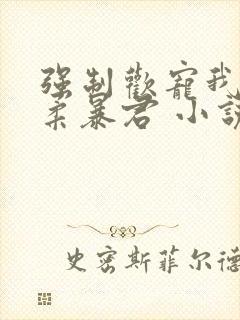 强制歡寵我
柔暴君 小說
史密斯菲尔德